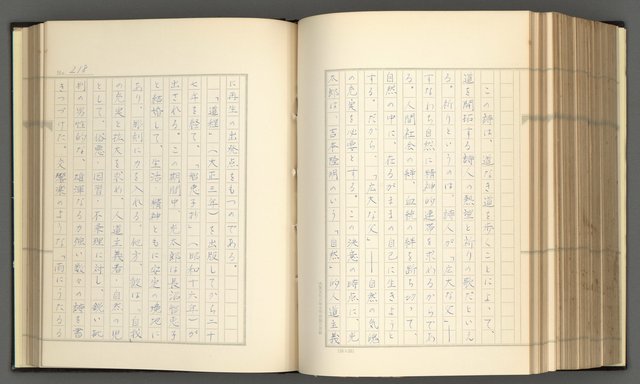 この詩は、道なき道を歩くことによって、
道を開拓する詩人の熱情と祈りの歌だといえ
る。祈りというのは、詩人が「広大な父」―
すなわち自然に精神的連帯を求めるからであ
る。人間社会の絆、血統の絆を断ち切って、
自然の中に、在るがままの自己に生きようと
する。だから、「広大な父」―自然の気魄
の充実を必要とする。この決意の時点に、光
太郎は、吉本隆明のいう「自然」的人道主義
No. 218
に再生の出発点をもつのである。
「道程」(大正三年)を出版してから二十
七年を経て、「智恵子抄」(昭和十六年)が
出される。この期間中、光太郎は長沼智恵子
と結婚して、生活・精神ともに安定の境地に
あり、彫刻に力を入れる。他方、彼は、自我
の充実と拡大を求め、人道主義者・自然の児
として、俗悪・因習・不条理に対し、鋭い批
判の男性的な、雄渾なる力強い数々の詩を書
きつづけた。交響楽のような「雨にうたるる